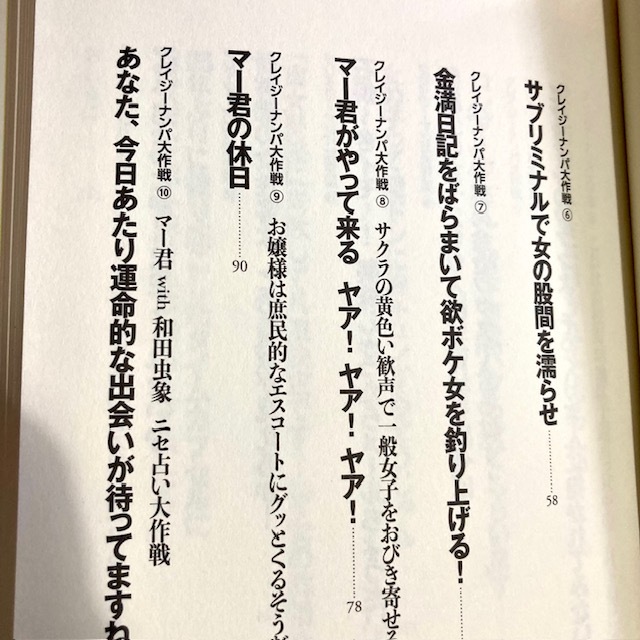 クレイジーナンパ大作戦⑥
サブリミナルで女の股間を濡らせ……………58
クレイジーナンパ大作戦⑦
金満日記をばらまいて欲ボケ女を釣り上げる!……
クレイジーナンパ大作戦⑧ サクラの黄色い歓声で一般女子をおびき寄せろ
マー君がやって来る ヤア!ヤア!ヤア!……………78
クレイジーナンパ大作戦⑨ お嬢様は庶民的なエスコートにグッとくるそうだ
マー君の休日……………90
クレイジーナンパ大作戦⑩ マー君with和田虫象 ニセ占い大作戦
あなた、今日あたり運命的な出会いが待ってますね